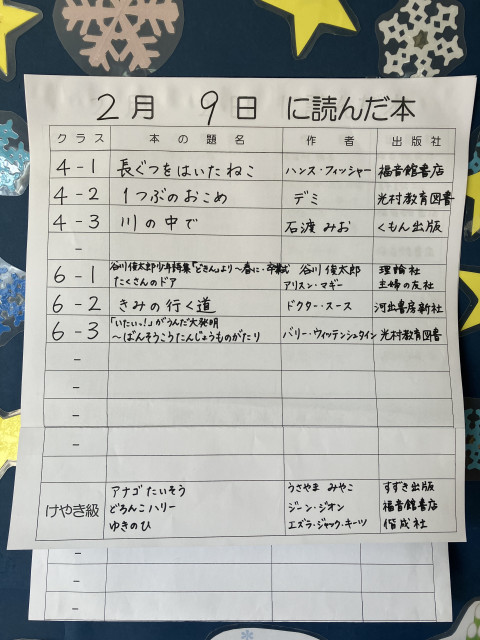 2月 9日 に読んだ本
クラス 本の題名 作者 出版社
4-1 長ぐつをはいたねこ ハンス・フィッシャー 福音館書店
4-2 1つぶのおこめ デミ 光村教育図書
4-3 川の中で 石渡みお くもん出版
-
6-1 谷川俊太郎少年詩集「どきん」より～春に・卒業式 谷川俊太郎 理論社
たくさんのドア アリスン・マギー 主婦の友社
6-2 きみの行く道 ドクター・スース 河出書房新社
6-3 「いたいっ!」がうんだ大発明
～ばんそうこうたんじょうものがたり バリー・ウィッテンシュタイン 光村教育図書
-
-
-
-
けやき級 アナゴたいそう うさやま みやこ すずき出版
どろんこハリー ジーン・ジオン 福音館書店
ゆきのひ エズラ・ジャック・キーツ 偕成社
-
-
-